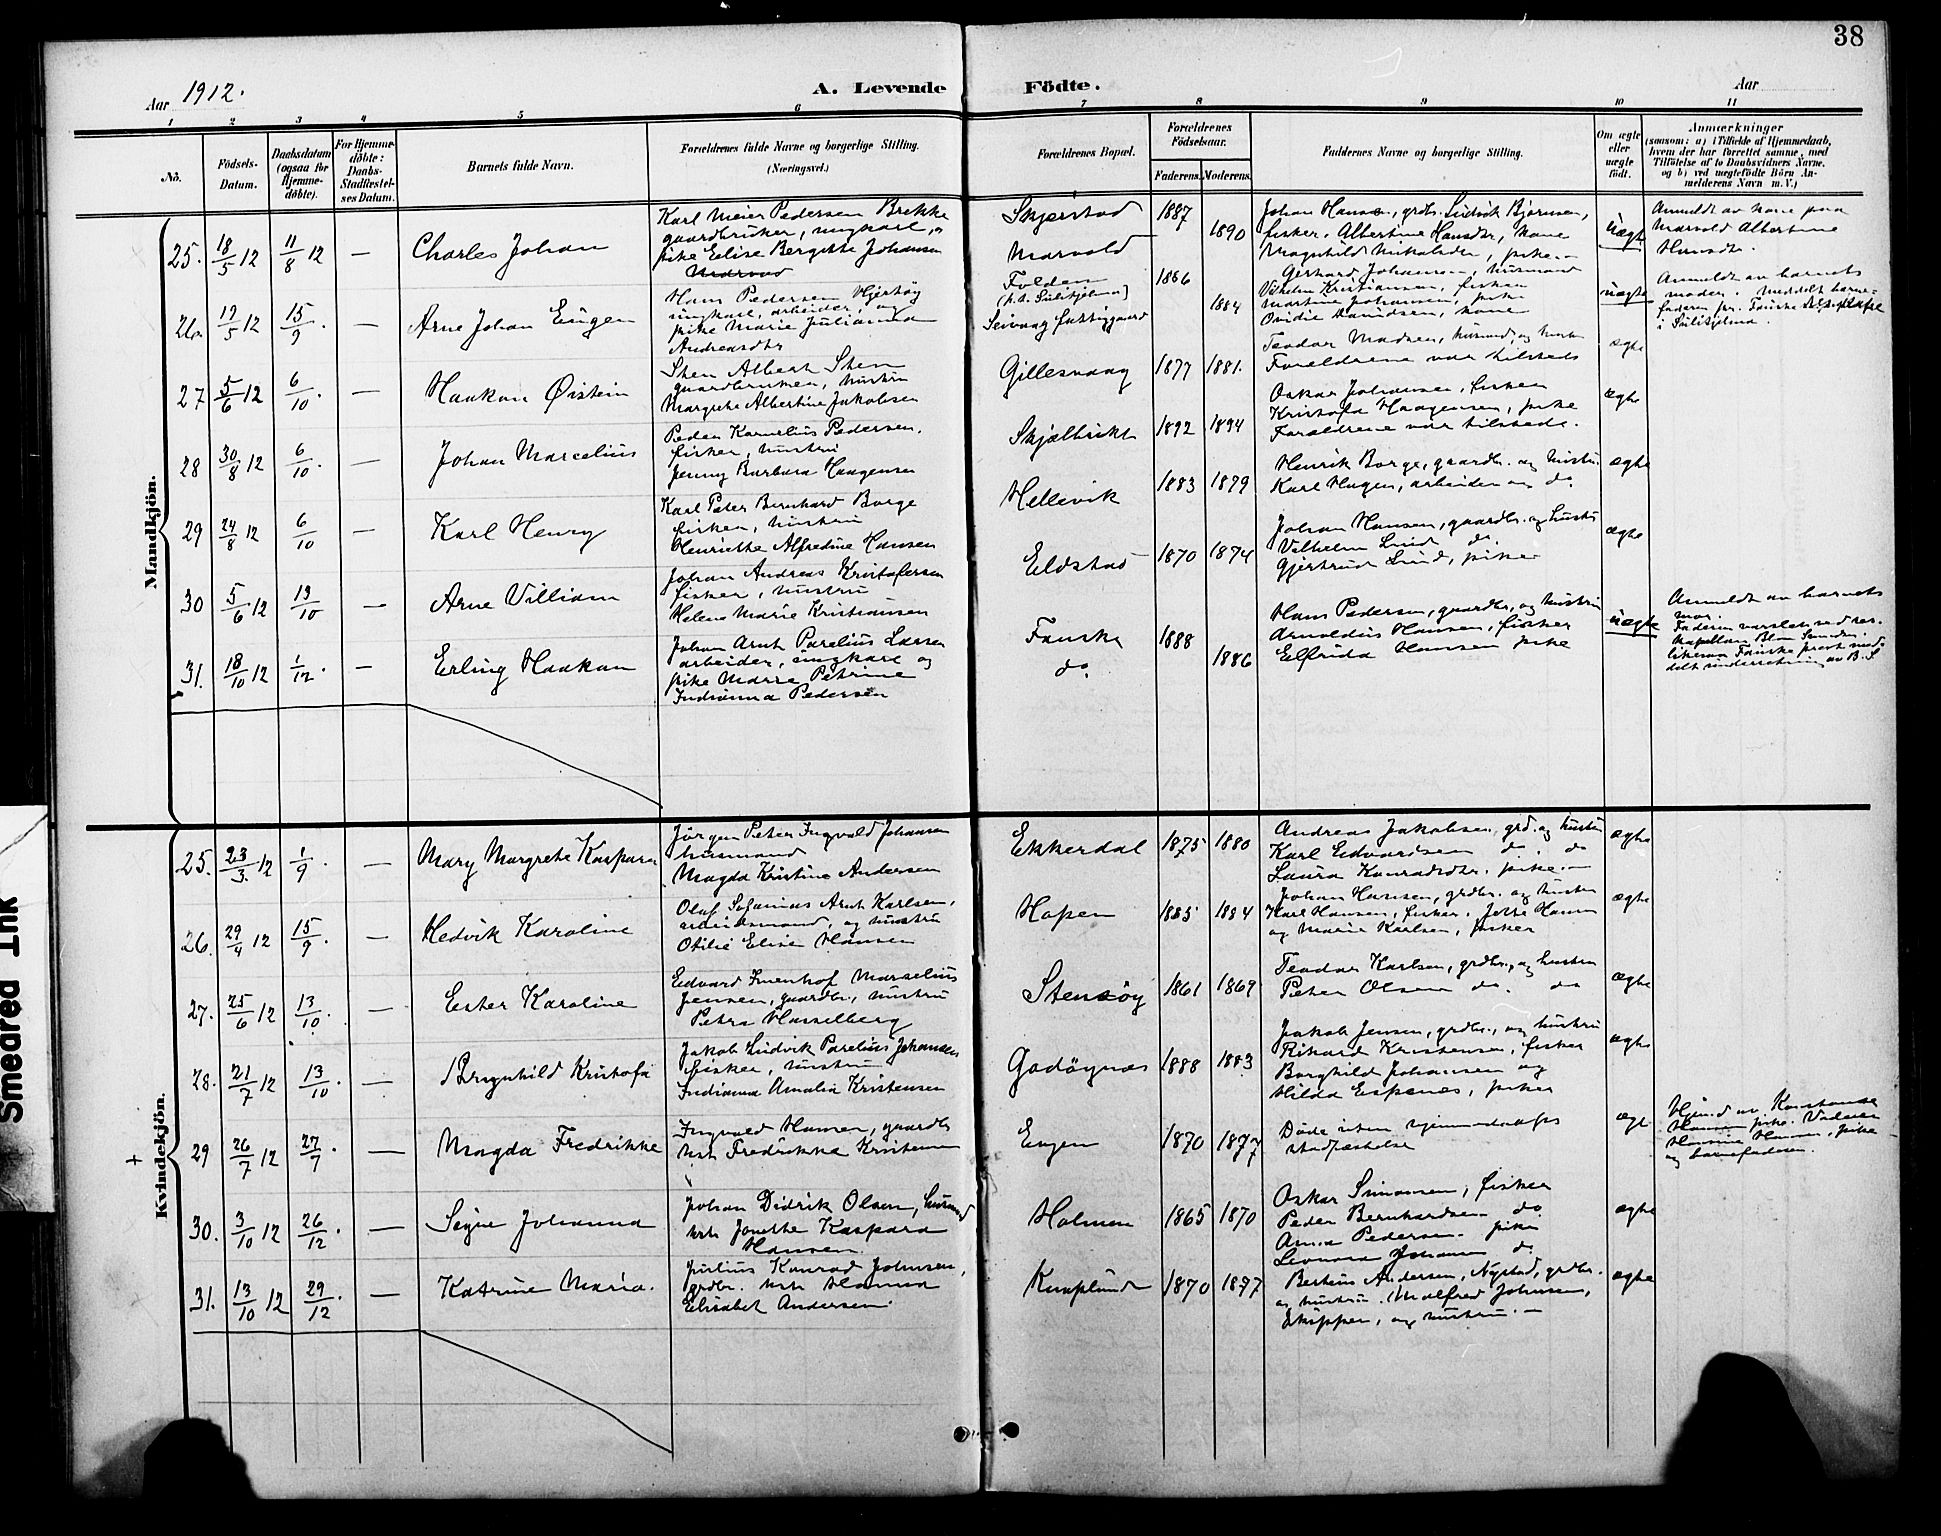 38
Aar 1912.
A. Levende Födte.
Aar
1 2 3 4 5 6 7 8 9 10 11
No.
Födsels-Datum.
Daabsdatum (ogsaa for Hjemme-döbte).
For Hjemme-döbte: Daabs-Stadfæstel-ses Datum.
Barnets fulde Navn.
Forældrenes fulde Navne og borgerlige Stilling.
(Næringsvei.)
Forældrenes Bopæl.
Forældrenes Födselsaar.
Faderens. Moderens.
Faddernes Navne og borgerlige Stilling.
Om ægte eller uægte födt.
Anmærkninger
(saasom: a) i Tilfælde af Hjemmedaab,
hvem der har forrettet samme, med
Tilföielse af to Daabsvidners Navne,
og b) ved uægtefödte Börn An-
melderens Navn m. V.)
Mandkjön.
25. 18/5 12 11/8 12 — Charles Johan
Karl Meier Pedersen Brekke
gaardbruker, ungkarl, og
pike Elise Bergitte Johansen
Marvold
Skjerstad
Marvold
1887 1890
Johan Hansen, grdbr. Ludvik Bjørnsen,
fisker. Albertine Hansdtr, kone
Magnhild Nikolaisdtr, pike. —
uægte
Anmeldt av kone paa
Marvold Albertine
Hansdtr.
26. 17/5 12 15/9. — Arne Johan Eugen
Hans Pedersen Hjertøy
ungkarl, arbeider, og
pike Marie Julianna
Andreasdtr
Folden
(p.t. Sulitjelma)
Seivaag fattiggaard
1886 1884
Gerhard Johansen, husmand
Vilhelm Kristiansen, fisker
Martine Johansen, pike
Ovidie Danidsen, kone
uægte
Anmeldt av barnets
moder. Meddelt barne-
faderen pr. Fauske
i Sulitjelma.
27 5/6 12 6/10. — Haakon Øistein
Sten Albert Sten
gaardbruker, hustru
Margrethe Albertine Jakobsen
Gillesvaag 1877 1881.
Teodor Madsen, husmd, og hustru
Forældrene var tilsteds
ægte
28 30/8 12 6/10. — Johan Marcelius
Peder Kornelius Pedersen,
fisker, hustru
Jenny Barbara Haagensen
Skjælbrikt 1892 1894
Oskar Johansen, fisker
Kristofa Haagensen, pike
Forældrene var tilstede.
ægte
29 24/8 12 6/10 — Karl Henry
Karl Peter Bernhard Borge
fisker, hustru
Henriette Alfredine Hansen
Hellevik 1883 1879
Henrik Borge, gaardbr. og hustru.
Karl Hagen, arbeider og do
ægte
30 5/6 12 13/10 — Arne Villiam
Johan Andreas Kristofersen
fisker, hustru
Helene Marie Kristiansen
Eldstad 1870 1874
Johan Hansen, gaardbr. og hustru
Vilhelm Lund do.
Gjertrud Lund, pike
ægte
31. 18/10 12 1/12. — Erling Haakon
Johan Arnt Parelius Larsen
arbeider, ungkarl og
pike Marie Petrine
Indianna Pedersen
Fauske
do.
1888 1886
Hans Pedersen, gaardbr, og hustru
Arnoldus Hansen, fisker
Elfrida Hansen pike
uægte
Anmeldt av barnets
mor.
Faderen varslet ved res.
kapellan
likesaa Fauske prest med-
delt underretning av B. S
Kvindekjön.
25. 23/3. 12 1/9. — Mary Margrete Kaspara
Jørgen Peter Ingvald Johansen
husmand
Magda Kristine Andersen
Ekkerdal 1875 1880
Andreas Jakobsen, grd. og hustru
Karl Edvardsen do. do
Laura Konradsdtr. pike. —
ægte
26. 29/4 12 15/9. — Hedvik Karoline
Olaf Sofanias Arnt Karlsen,
arbeidsmand, og hustru
Otilie Elise Hansen
Hopen 1885 1884
Johan Hansen, grdbr. og hustru
Karl Hansen, fisker.
og Marie Karlsen, piker
ægte
27. 25/6 12 13/10. — Ester Karoline
Edvard Marselius
Jensen, gaardbr., hustru
Petra Hasselberg
Stensøy 1861 1869
Teodor Karlsen, grdbr., og hustru
Peter Olsen do. do
ægte
28. 21/7 12 13/10. — Brynhild Kristofa
Jakob Ludvik Parelius Johansen
fisker, hustru
Indianna Amalia Kristensen
Godøynes 1888 1883
Jakob Jensen, grdbr., og hustru
Rikard Kristensen, fisker
Borghild Johansen og
Hilda Espenes, piker
ægte
+ 29 26/7 12 27/7. — Magda Fredrikke
Ingvald Hansen, gaardbr
hstr Fredrikke Kristensen
Engen 1870 1877
Døde uten hjemmedaaps
stadfæstelse
ægt
Hjmd. av Konstanse
Hansen pike. Vidner
Hansine Hansen, pike
og barnefaderen.
30. 3/10 12 26/12. — Signe Johanna
Johan Didrik Olsen, husmd
hstr Jonette Kaspara
Hansen
Holmen 1865 1870
Oskar Simonsen, fisker
Peder Bernhardsen do
Anna Pedersen. pike
Leonora Johansen do.
ægte
31. 13/10 12 29/12. — Katrine Maria.
Julius Konrad Johnsen,
grdbr. hstr Hanna
Elisabet Andersen.
Knaplund 1870 1877
Berteus Andersen, Nystad, grdbr.
og hustru. Malfred Johnsen,
skipper, og hustru. —
ægte
Smeared Ink